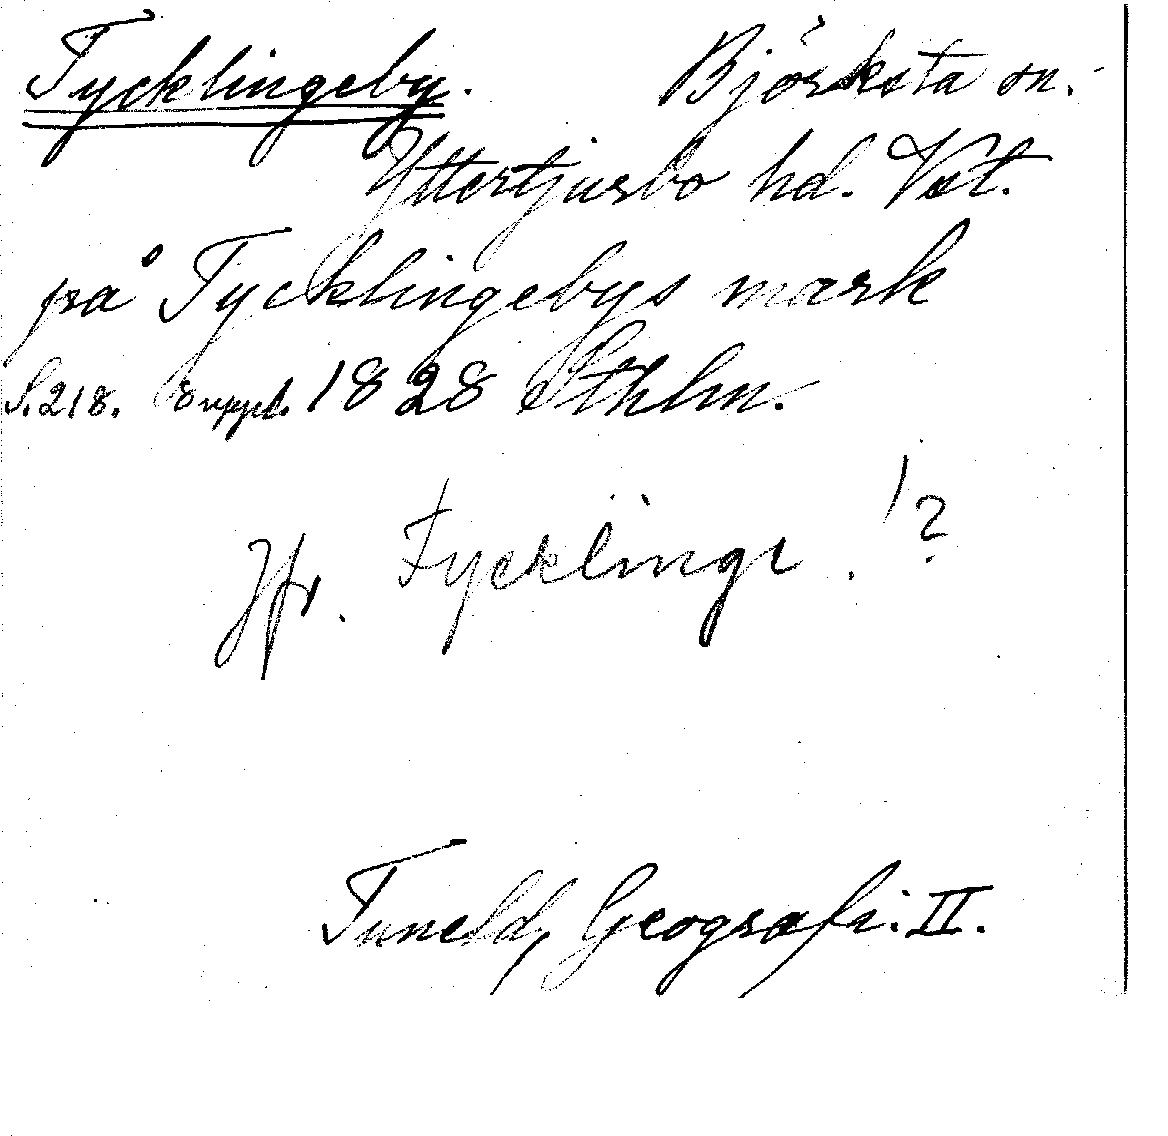 Tycklingeby. Björksta sn.
Yttertjurbo hd. Vst.
på Tycklingebys mark
S. 218. 8 uppl. 1828 Sthlm.
Jfr. Fycklinge!?
Tuneld, Geografi. II.